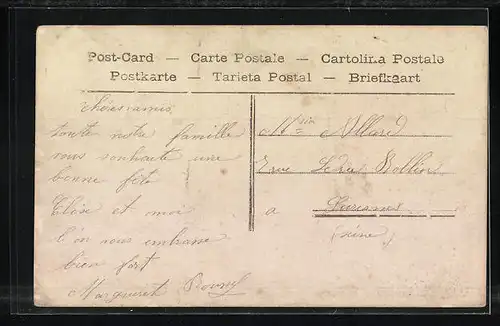 Post-Card — Carte Postale — Cartolina Postale
Postkarte — Tarieta Postal — Briefkaart
chères amies
toute notre famille
vous souhaite une
bonne fête
Elise et moi
l'on vous embrasse
bien fort
Marguerit
Allard
rue Ledru Rollin
a Suresnes
(Seine)